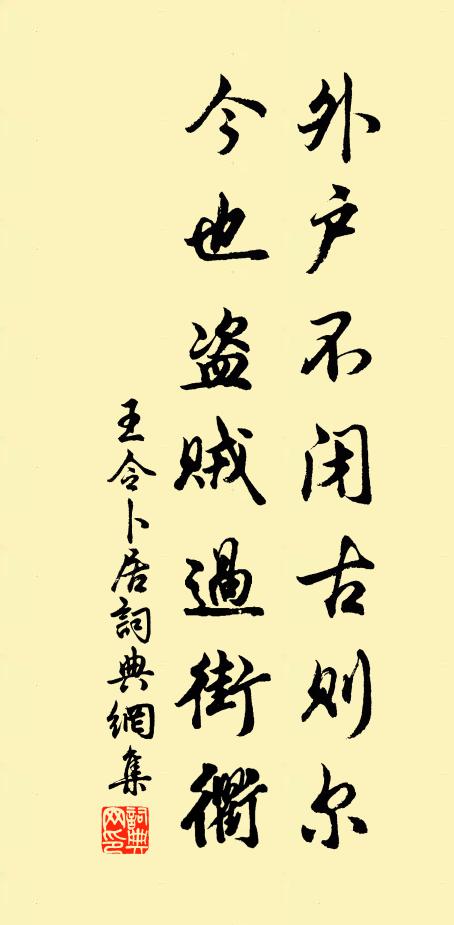 外户不闭古则尔
今也盗贼過街衢
王令卜居詞典網集
詞典網印